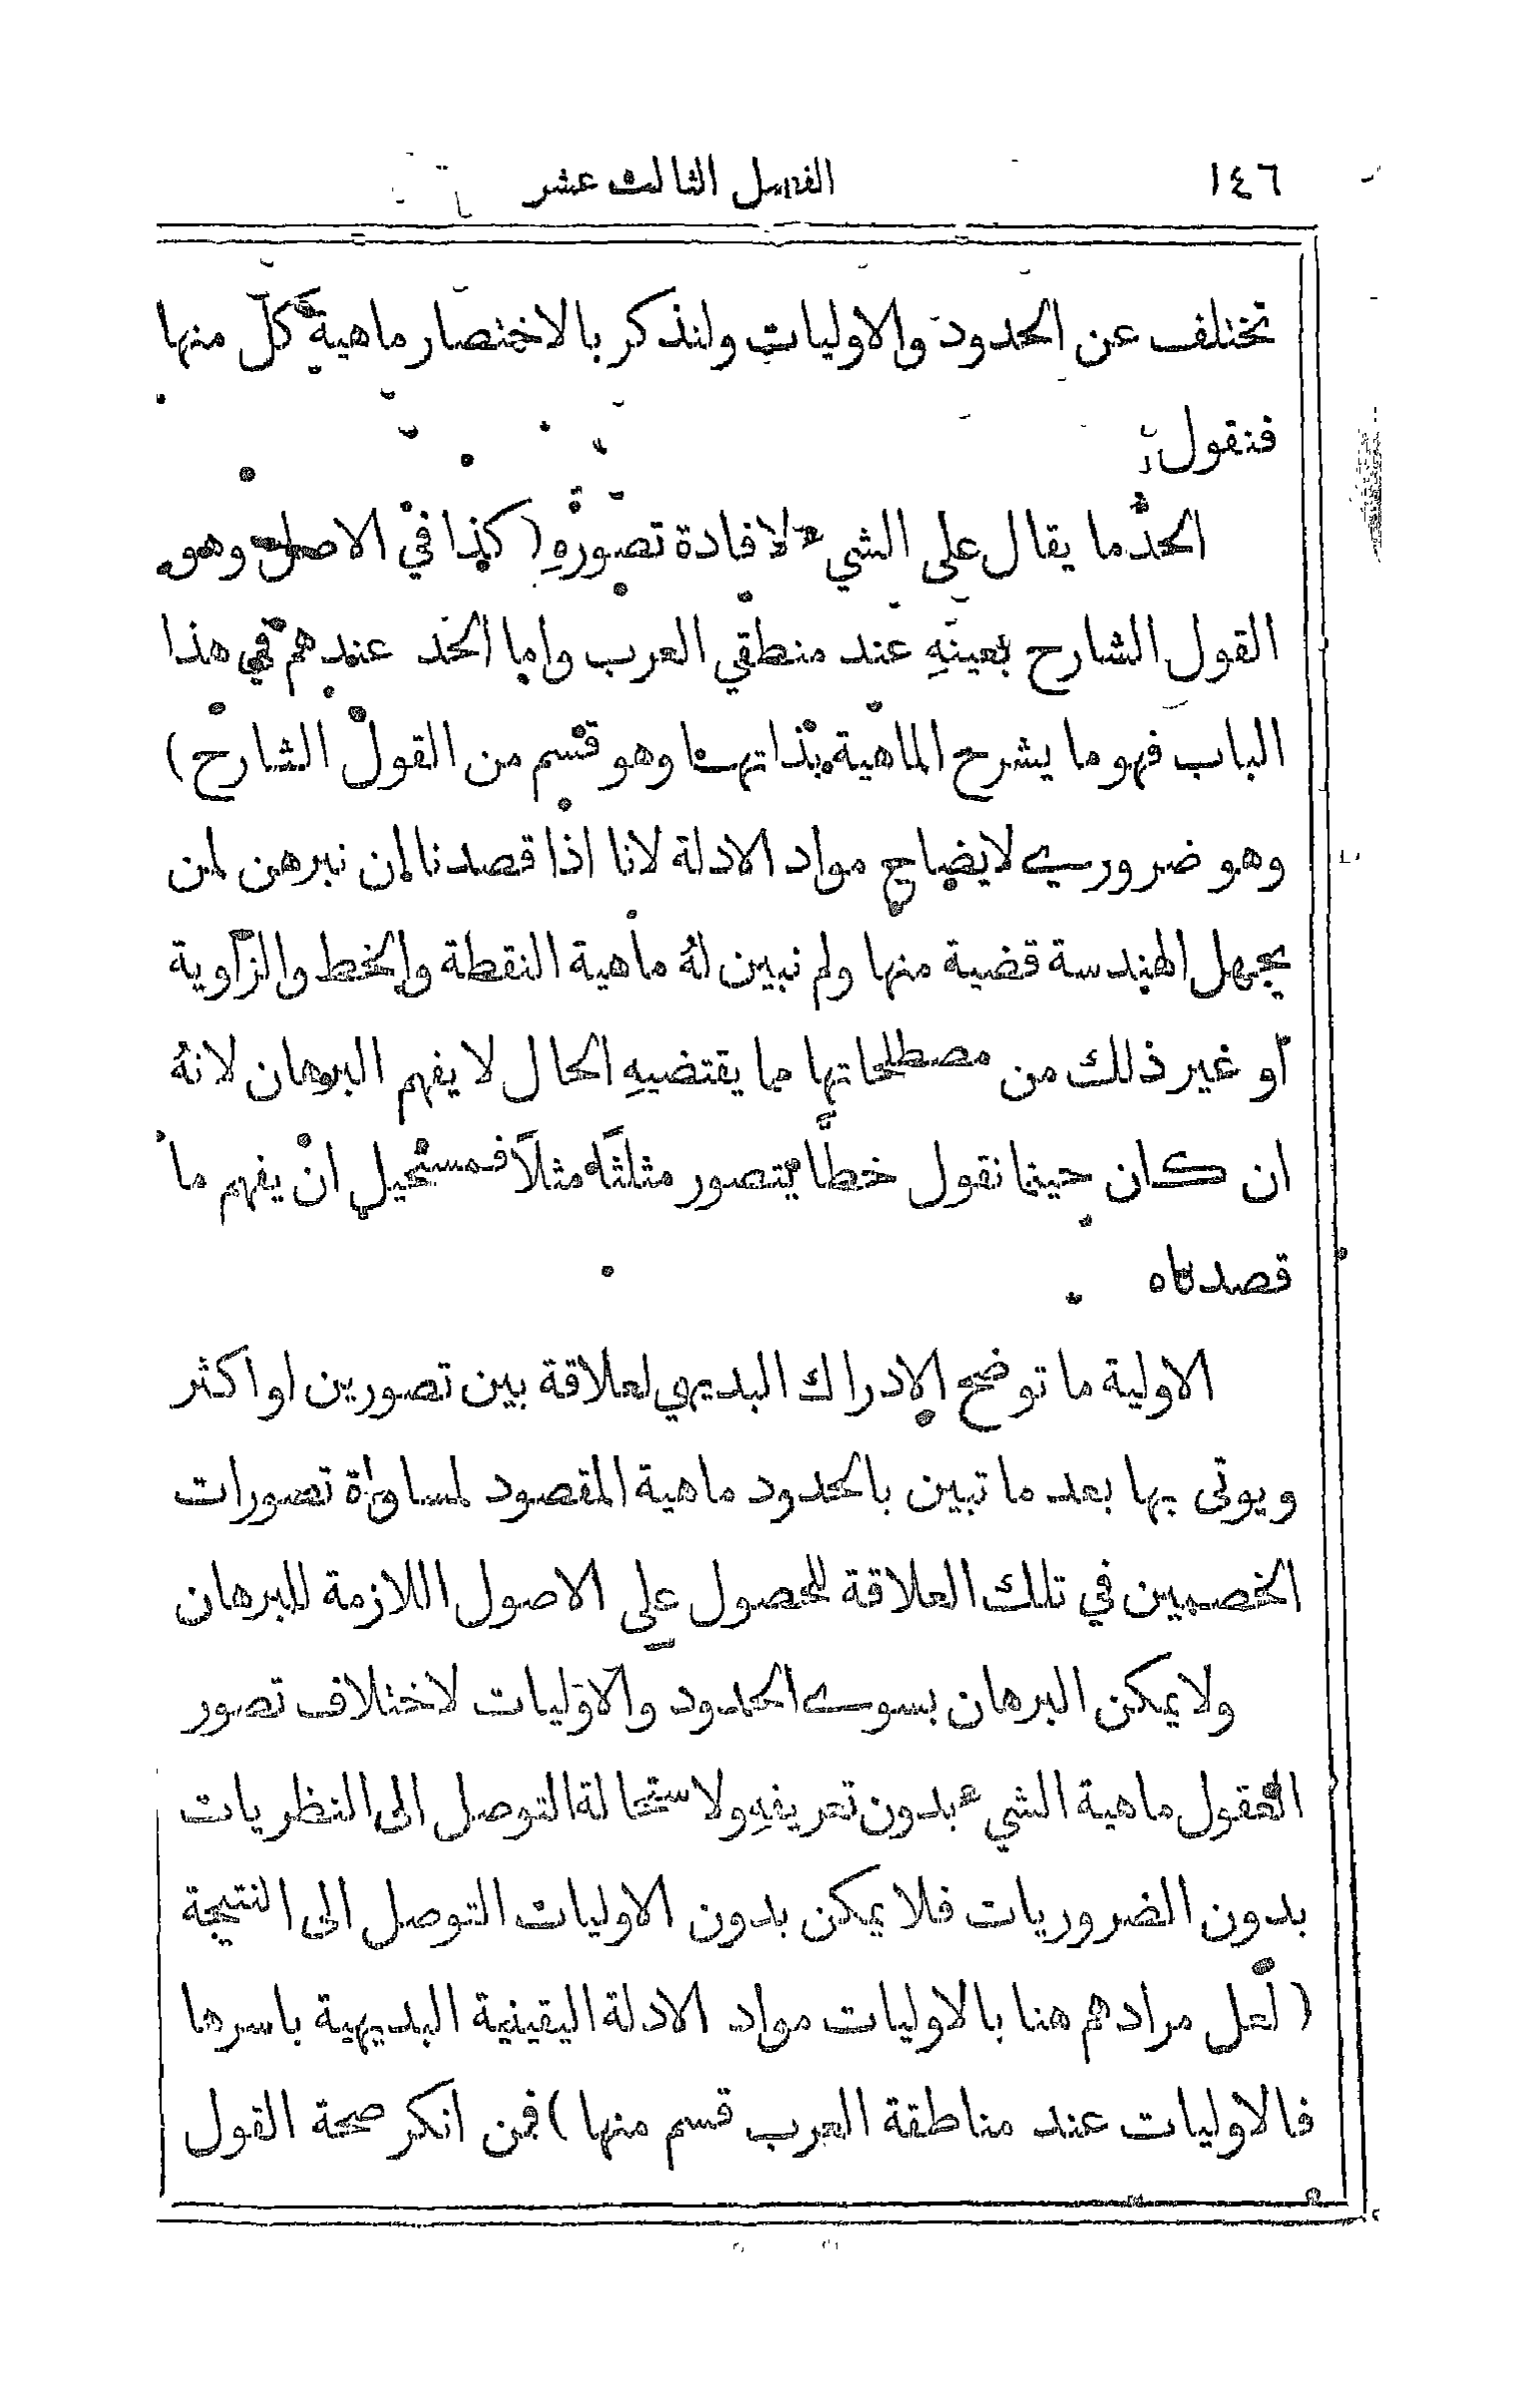 ١٤٦
الفصل الثالث عشر
تختلف عن الحدود والاوليات ولنذكر بالاختصار ماهية كلّ منها
فنقول
الحدّ ما يقال على الشيء لافادة تصورهِ (كذا في الاصل وهو
القول الشارح بعينهِ عند منطقي العرب واما الحد عندهم في هذا
الباب فهو ما يشرح الماهية بذاتها وهو قسم من القول الشارح)
وهو ضروري لايضاح مواد الادلة لانا اذا قصدنا ان نبرهن لمن
يجهل الهندسة قضية منها ولم نبين لهُ ماهية النقطة والخط والزاوية
أو غير ذلك من مصطلحاتها مما يقتضيهِ الحال لا يفهم البرهان لانهُ
ان كان حينما نقول خطًّا يتصور مثلثًا مثلاً فمستحيل ان يفهم ما
قصدناه
الاولية ما توضح الادراك البديهي لعلاقة بين تصورين او اكثر
ويوتى بها بعد ما تبين بالحدود ماهية المقصود لمساواة تصورات
الخصمين في تلك العلاقة للحصول على الاصول اللازمة للبرهان
ولا يمكن البرهان بسوى الحدود والاوّليات لاختلاف تصور
العقول ماهية الشيء بدون تعريفهِ ولاستحالة التوصل الى النظريات
بدون الضروريات فلا يمكن بدون الاوليات التوصل الى النتيجة
(لعل مرادهم هنا بالاوليات مواد الادلة اليقينية البديهية باسرها
فالاوليات عند مناطقة العرب قسم منها) فمن انكر صحة القول